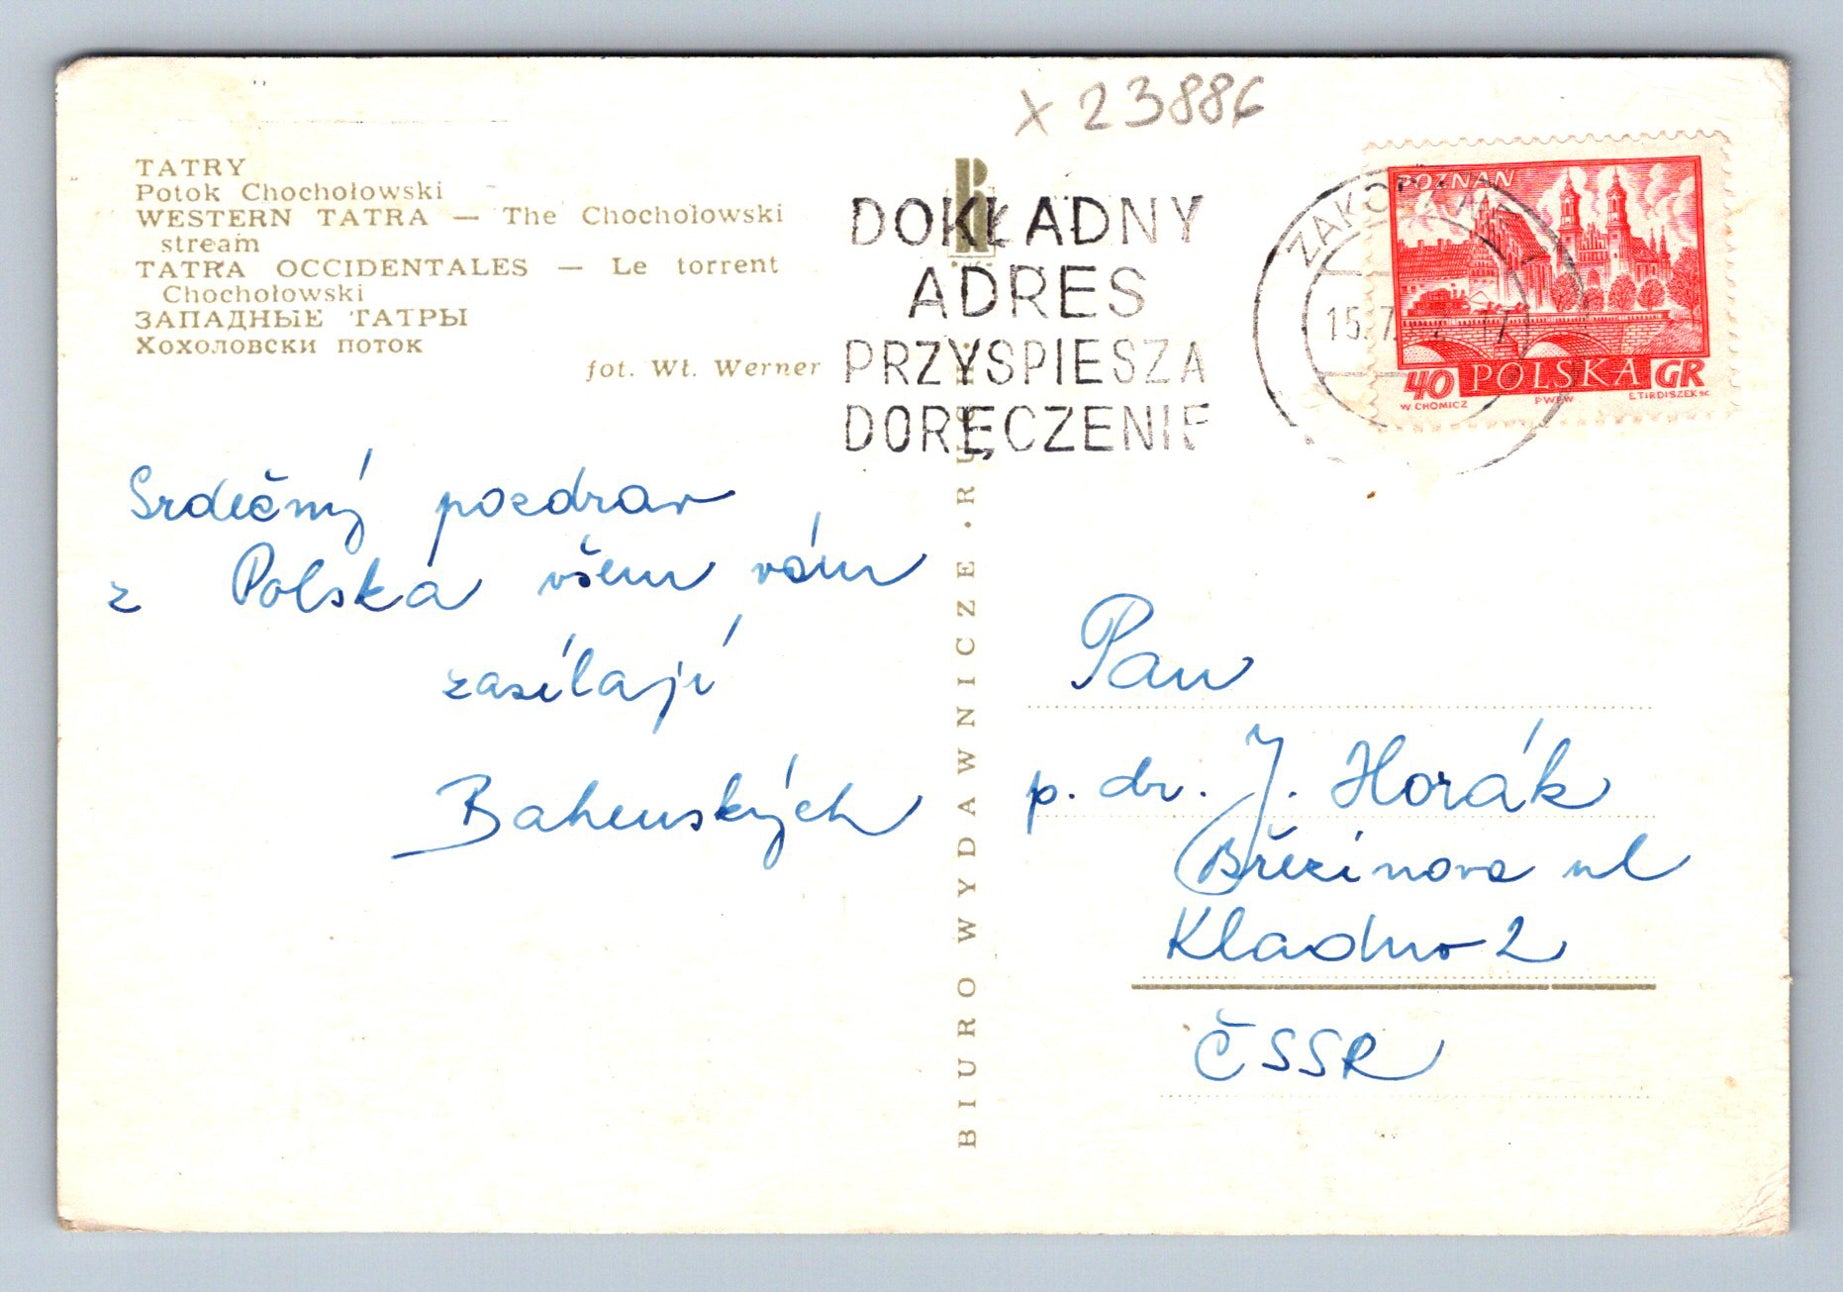 x 23886
TATRY
Potok Chochołowski
WESTERN TATRA — The Chochołowski
stream
TATRA OCCIDENTALES — Le torrent
Chochołowski
ЗАПАДНЫЕ ТАТРЫ
Хохоловски поток
fot. Wł. Werner
DOKŁADNY
ADRES
PRZYSPIESZA
DORĘCZENIE
ZAKOPANE
15.7.
17
POZNAŃ
40 POLSKA GR
W CHOMICZ PWPW
Srdečný pozdrav
z Polska všem vám
zasílají
Bahenských
BIURO WYDAWNICZE • RUCH
Pan
p. dr. J. Horák
Březinova ul
Kladno 2
ČSSR